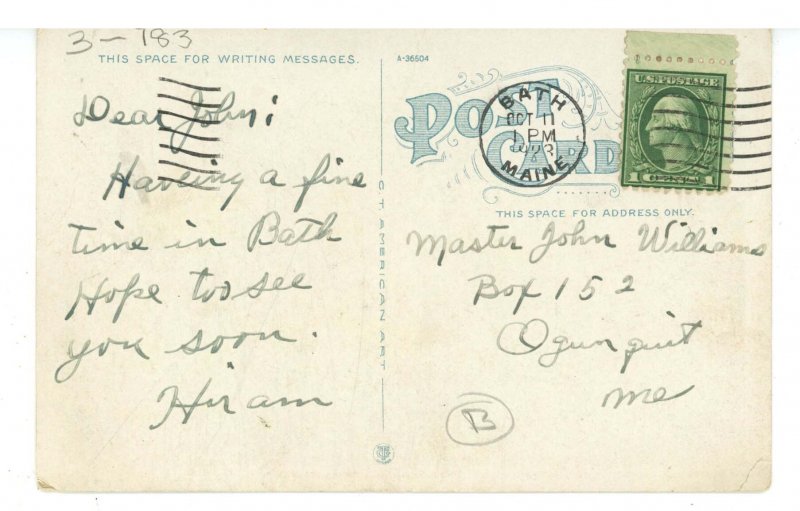 3-783
THIS SPACE FOR WRITING MESSAGES.
Dear John:
Haveing a fine
time in Bath
Hope too see
you soon.
Hiram
C.T. AMERICAN ART
A-36504
POST CARD
BATH
OCT 11
1 PM
1923
MAINE
U.S. POSTAGE
1 CENT 1
THIS SPACE FOR ADDRESS ONLY.
Master John Williams
Box 152
Ogunquit
Me
B